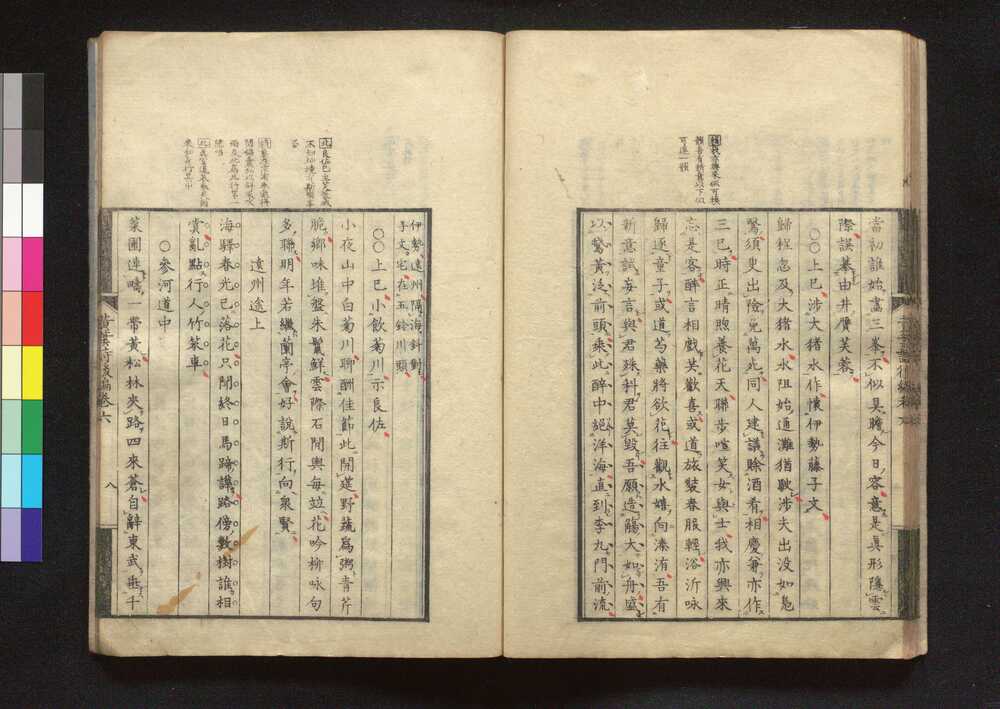 當初誰始畫三峯不似具瞻今日容意是眞形隱雲
際誤摹由井贋芙蓉
〇〇上巳渉大猪水作懷伊勢藤子文
歸程忽及大猪水水阻始通灘猶駛渉夫出没如鳬
鷖須臾出險免萬死同人建議賖酒肴相慶兼亦作
三巳時正晴煦養花天聯歩喧笑女與士我亦興來
忘是客醉言相戲笑歡喜或道旅裝春服輕浴沂咏
歸逐童子或道芍藥將欲花往觀水嬉向溱洧吾有
新意試妄言與君殊科君莫毀吾願造觴大如舟盛
以鵞黄泛前頭乘此醉中絕洋海直到李九門前流
伊勢遠州隔海斜對
李文宅在五鈴川頭
〇〇上巳小飲菊川示良佐
小夜山中白菊川聊酬佳節此開筵野蔬爲粥青芹
脆鄉味堆盤朱鬣鮮雲際石閒輿每竝花吟柳咏句
多聯明年若繼蘭亭會好說斯行向衆賢
遠州途上
海驛春光已落花只聞終日馬蹄譁路傍數樹誰相
賞亂點行人竹筴車
〇參河道中
菜圃連疇一帶黄松林夾路四來蒼自辭東武無千
黄葉詩後編卷六
八